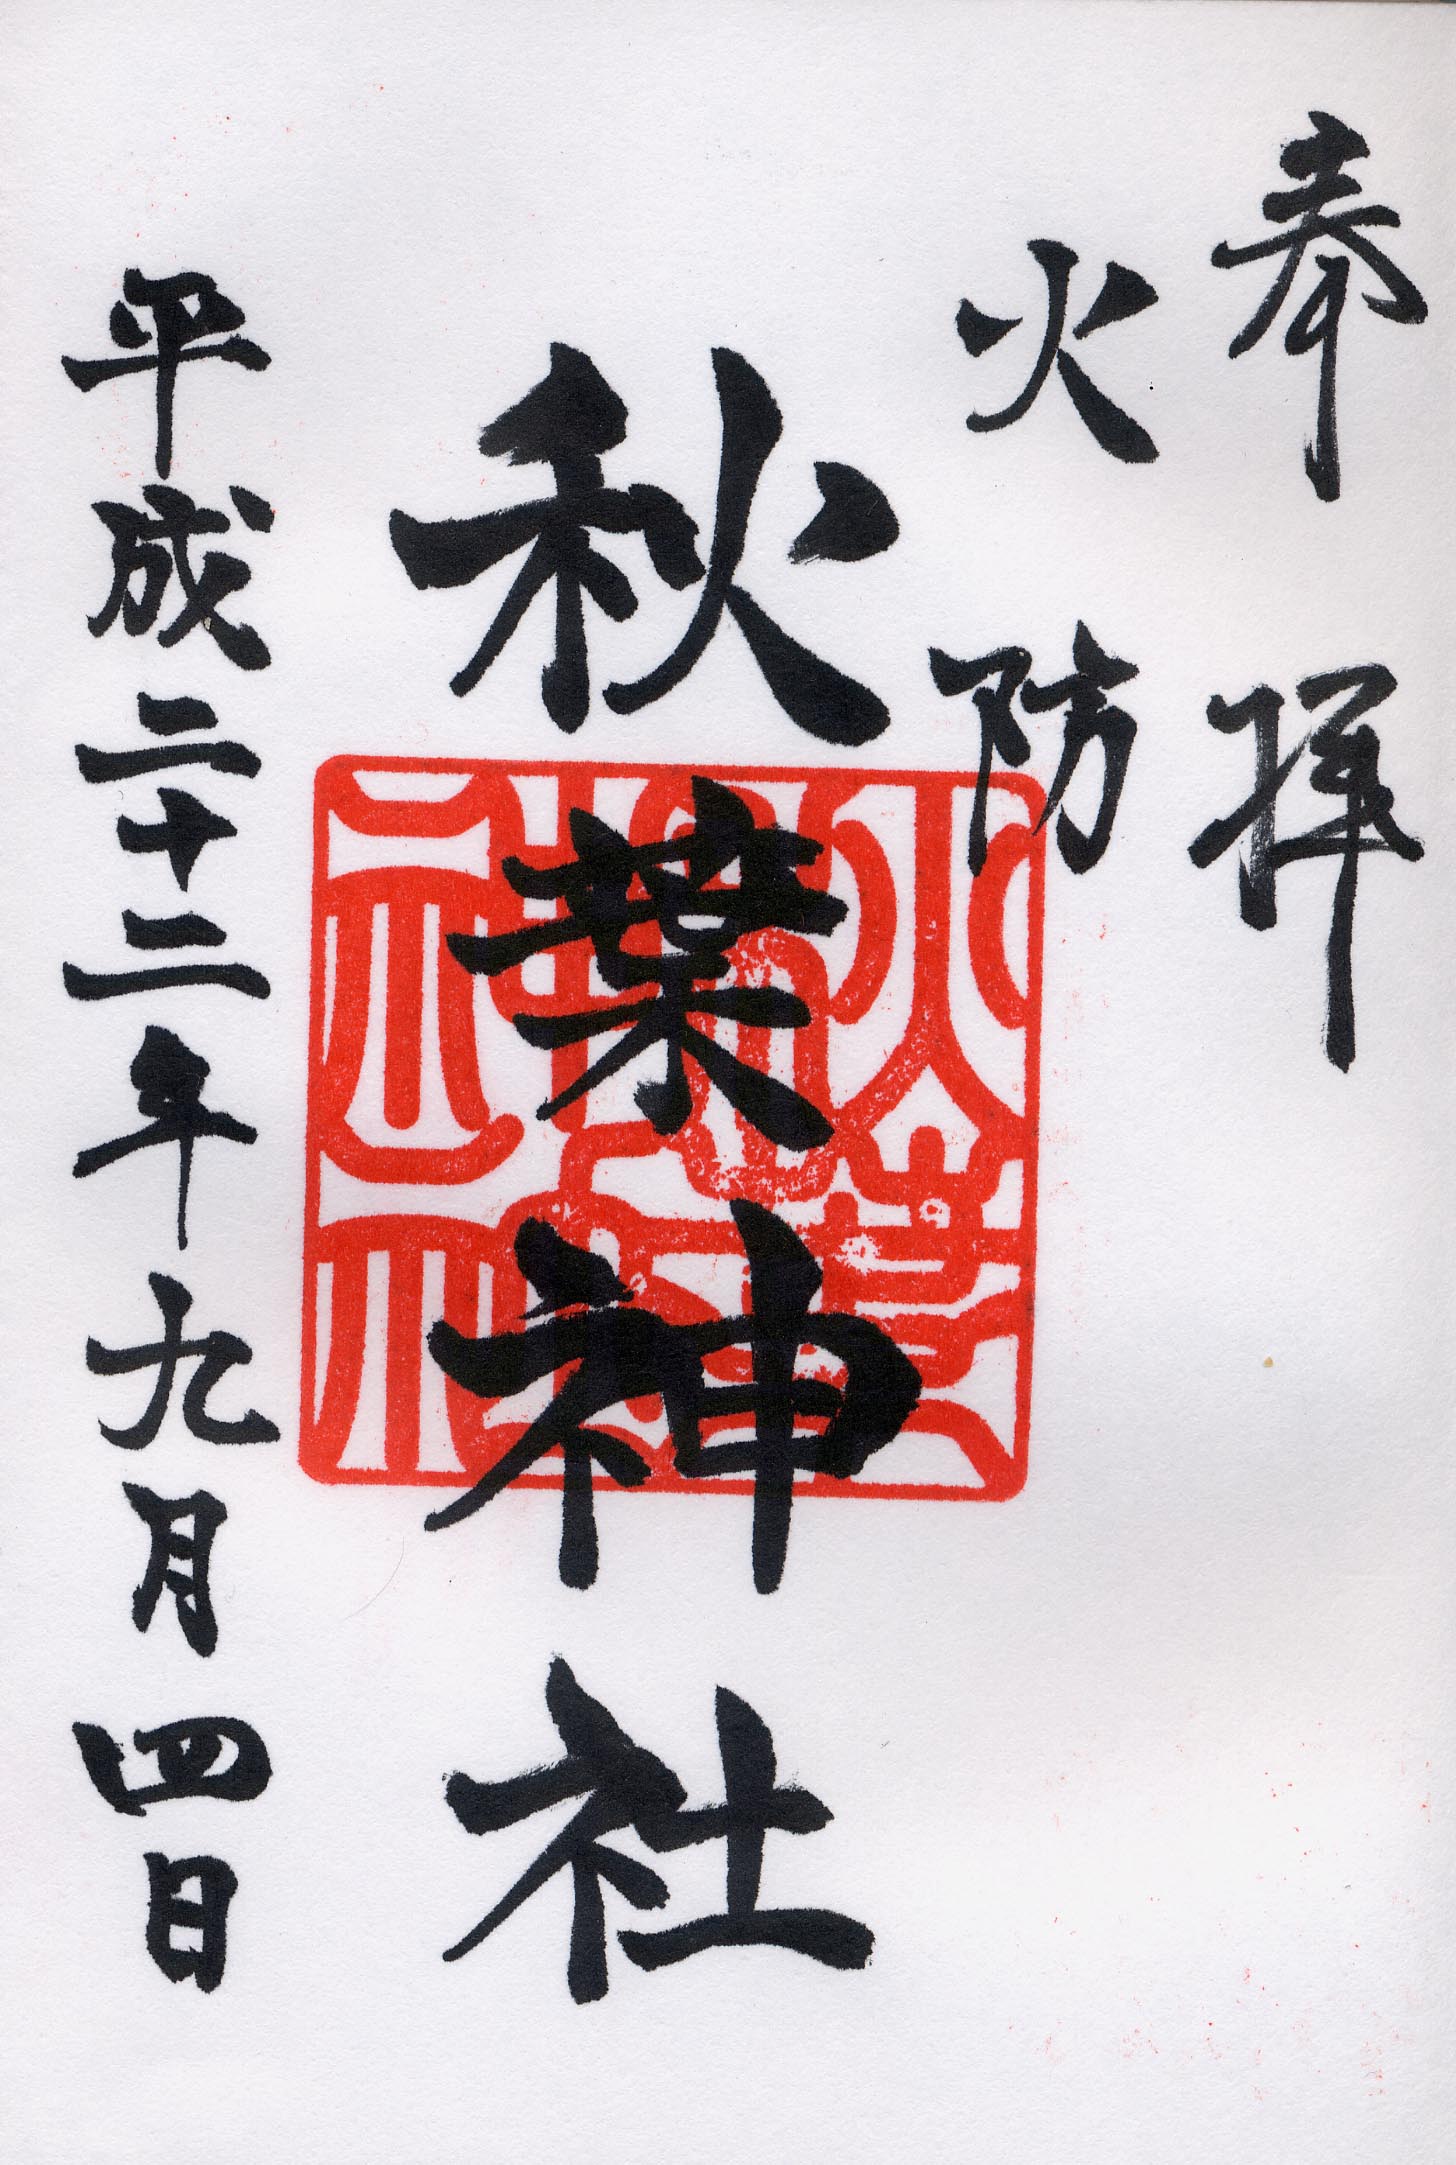 奉拝
火防
秋葉神社
平成二十二年九月四日